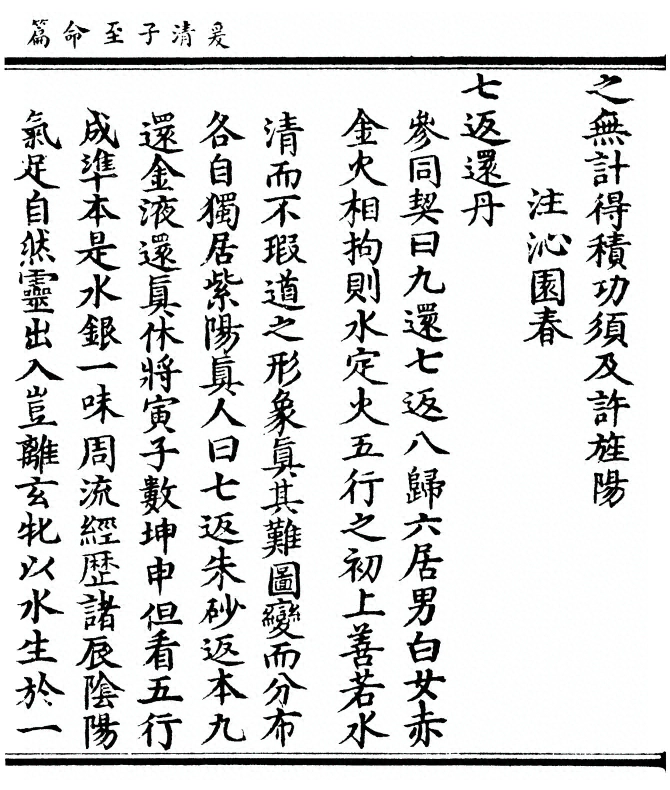 爰清子至命篇
之無計得積功須及許旌陽
注沁園春
七返還丹
參同契曰九還七返八歸六居男白女赤
金火相拘則水定火五行之初上善若水
清而不瑕道之形象眞其難圖變而分布
各自獨居紫陽眞人曰七返朱砂返本九
還金液還眞休將寅子數坤申但看五行
成準本是水銀一味周流經歷諸辰陰陽
氣足自然靈出入豈離玄牝以水生於一